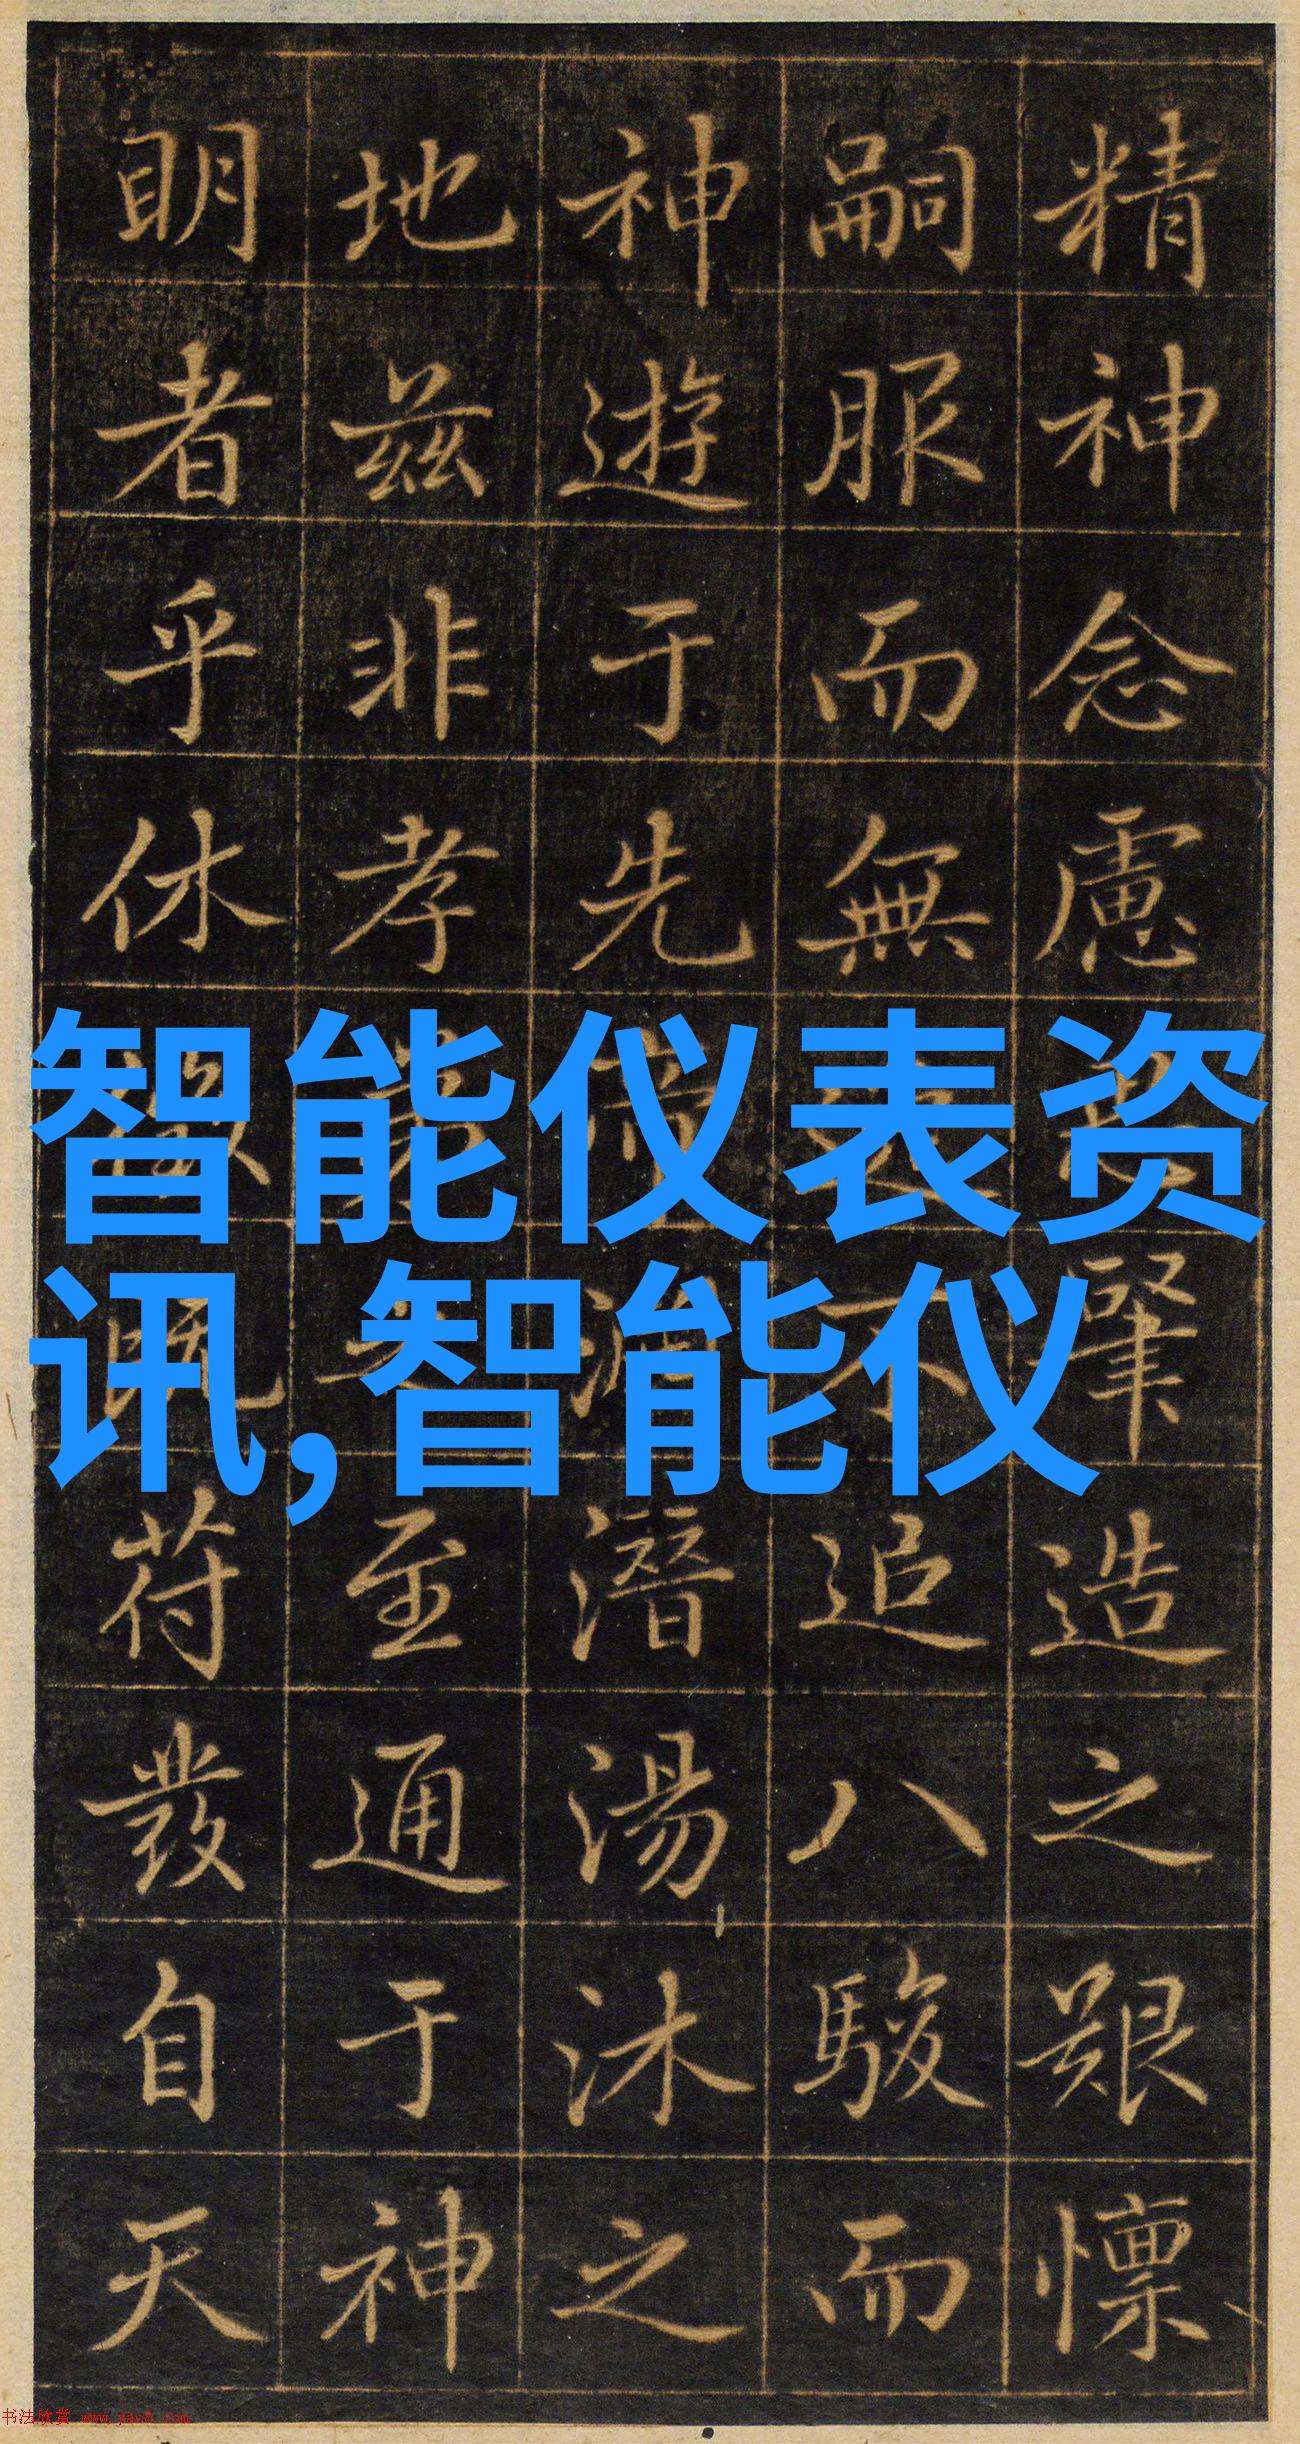 精神念慮肇造之艱懍
嗣服而無不追八駿而
神遊于先潛湯沐之
地兹非孝至通于神
眀者乎休既苻發自天
智能仪表资
讯,智能仪
书法欣赏 www.yac8.com